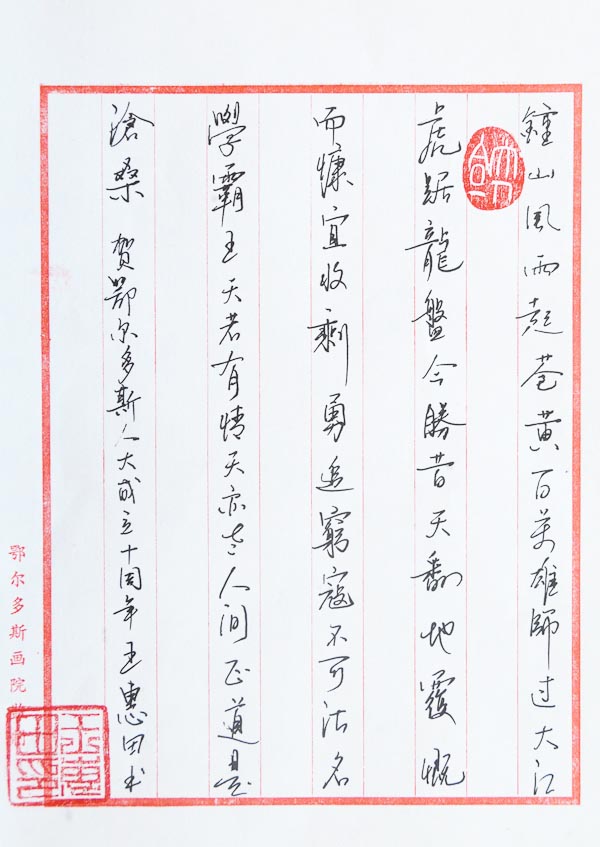 鐘山風雨起苍黄百萬雄師过大江
虎踞龍盤今勝昔天翻地覆慨
而慷宜将剩勇追窮寇不可沽名
學霸王天若有情天亦老人间正道是
滄桑 贺鄂尔多斯人大成立十周年 王惠田书
鄂尔多斯画院
王惠田印